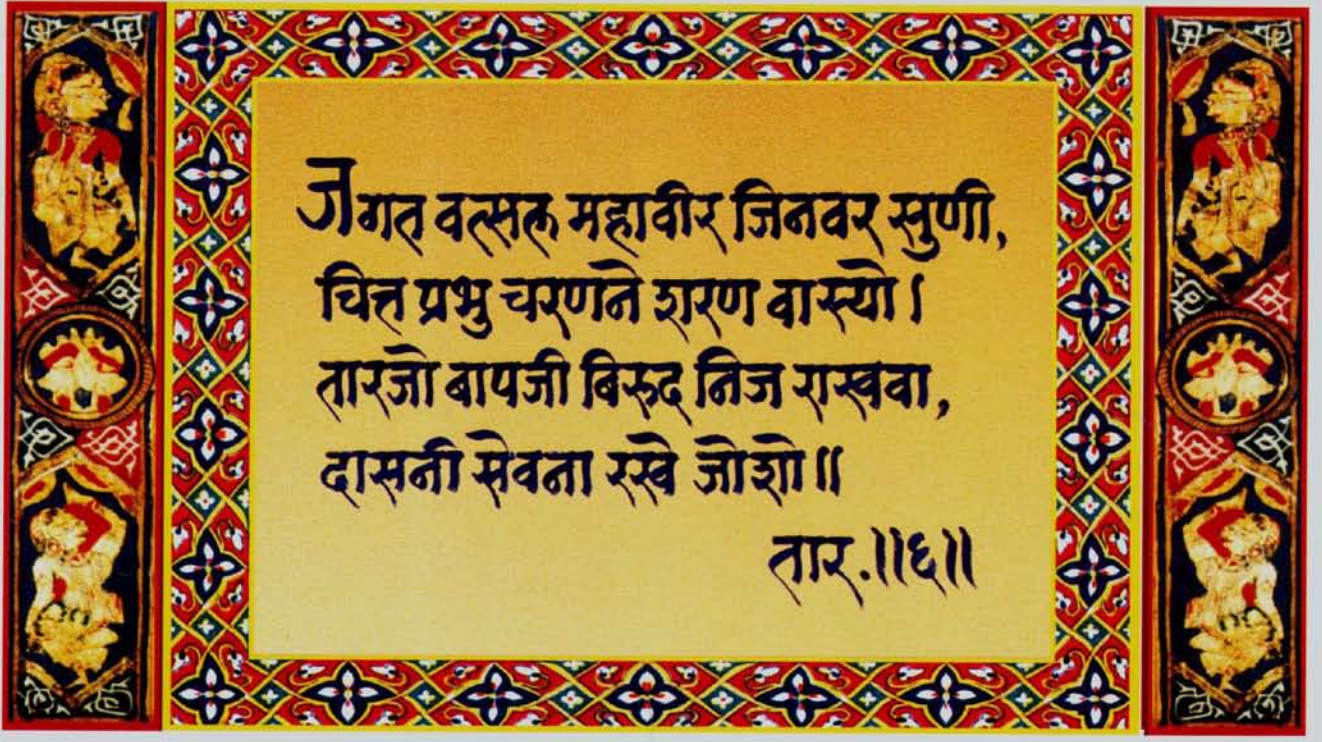 जगत वत्सल महावीर जिनवर सुणी,
चित्त प्रभु चरणने शरण वास्यो।
तारजो बापजी बिरुद निज राखवा,
दासनी सेवना रखे जोशो॥
तार.॥६॥